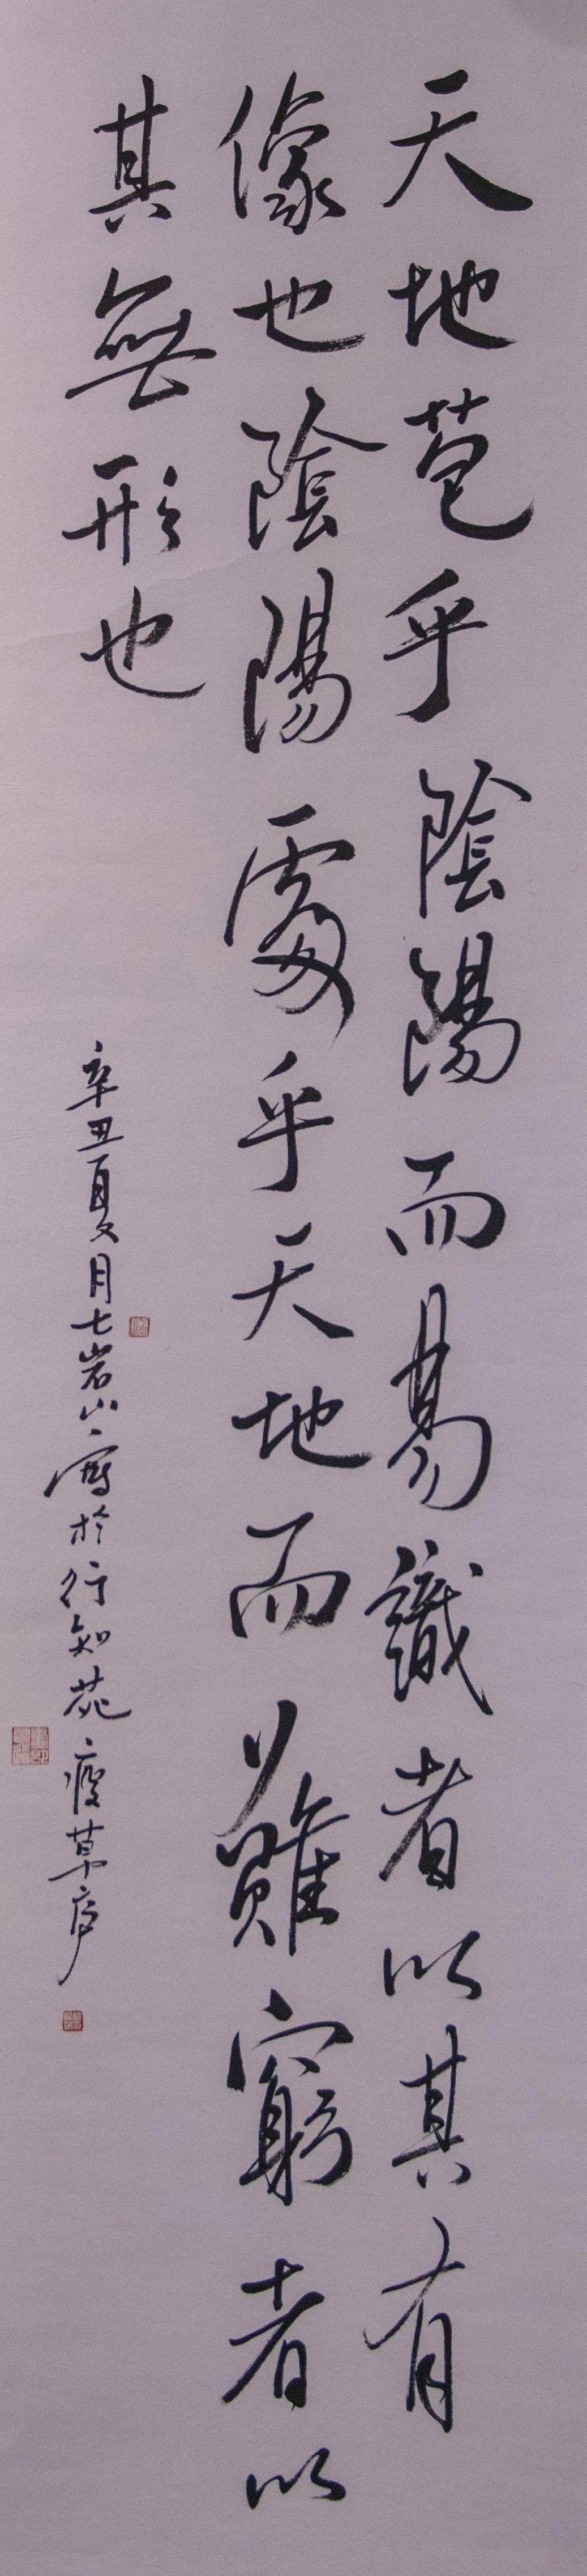 天地苞乎陰陽而易識者以其有
像也陰陽處乎天地而難窮者以
其無形也
辛丑夏月七岩山寫於行知苑瘦草序